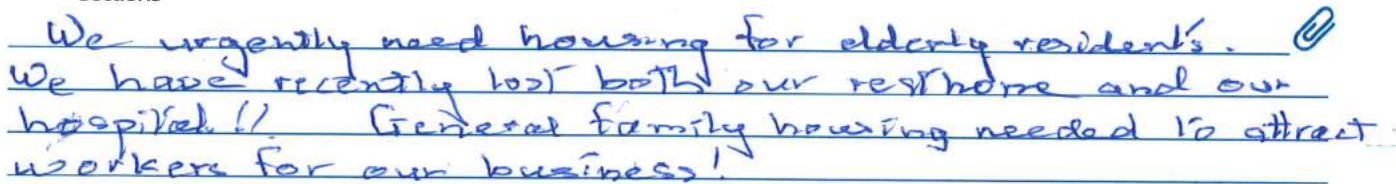 We urgently need housing for elderly resident's.
We have recently lost both our resthome and our
hospital!! General family housing needed to attract
workers for our business!